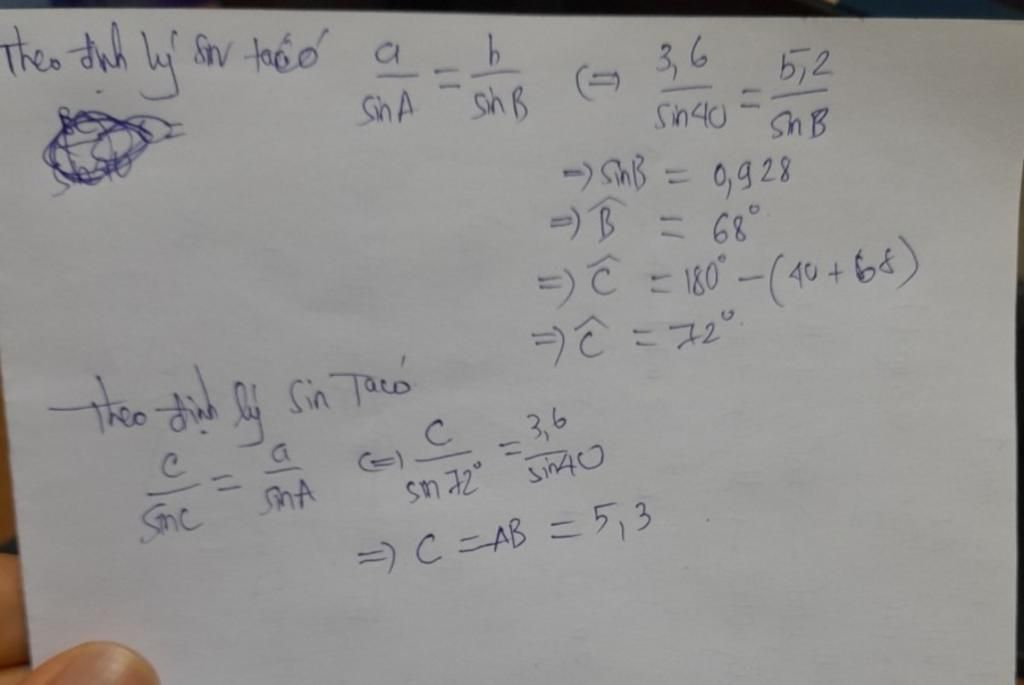 Theo định lý sin ta có a/sinA = b/sinB (=) 3,6/sin40 = 5,2/sinB
=) sinB = 0,928
=) B̂ = 68°
=) Ĉ = 180° - (40 + 68)
=) Ĉ = 72°
Theo định lý sin Ta có
c/sinC = a/sinA (=) C/sin72° = 3,6/sin40
=) C = AB = 5,3